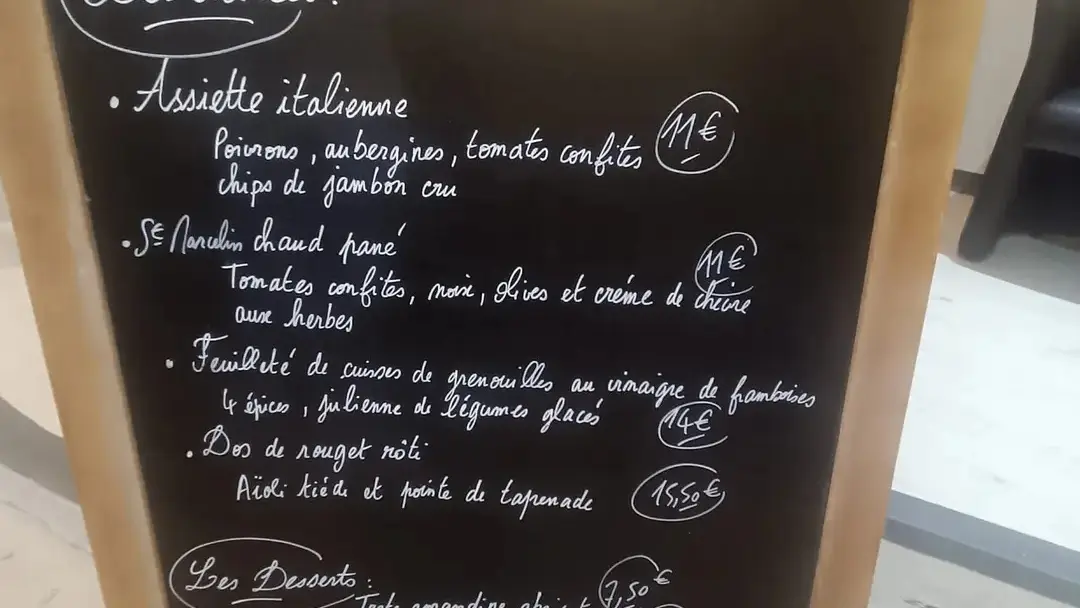 • Assiette italienne
Poivrons, aubergines, tomates confites 11€
chips de jambon cru
• St Marcelin chaud pané
11€
Tomates confites, noix, olives et crème de chèvre
aux herbes
• Feuilleté de cuisses de grenouilles au vinaigre de framboises
4 épices, julienne de légumes glacés 14€
• Dos de rouget rôti
Aïoli tiède et pointe de tapenade 15,50€
Les Desserts :
7,50€